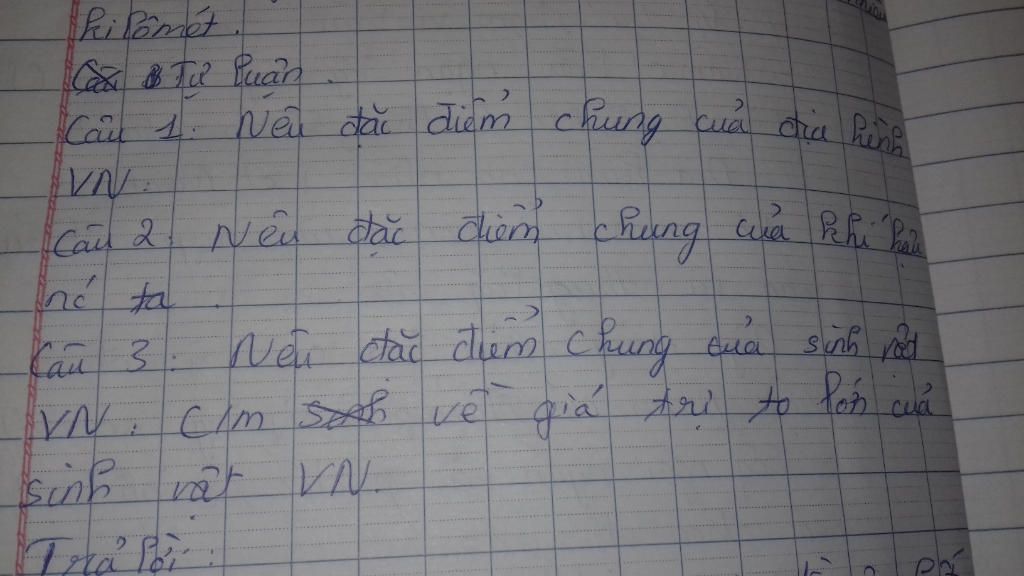 kilômét.
Tự luận.
Câu 1: Nêu đặc điểm chung của địa hình
VN.
Câu 2: Nêu đặc điểm chung của khí hậu
nc ta.
Câu 3: Nêu đặc điểm chung của sinh vật
VN. C/m về giá trị to lớn của
sinh vật VN.
Trả lời: